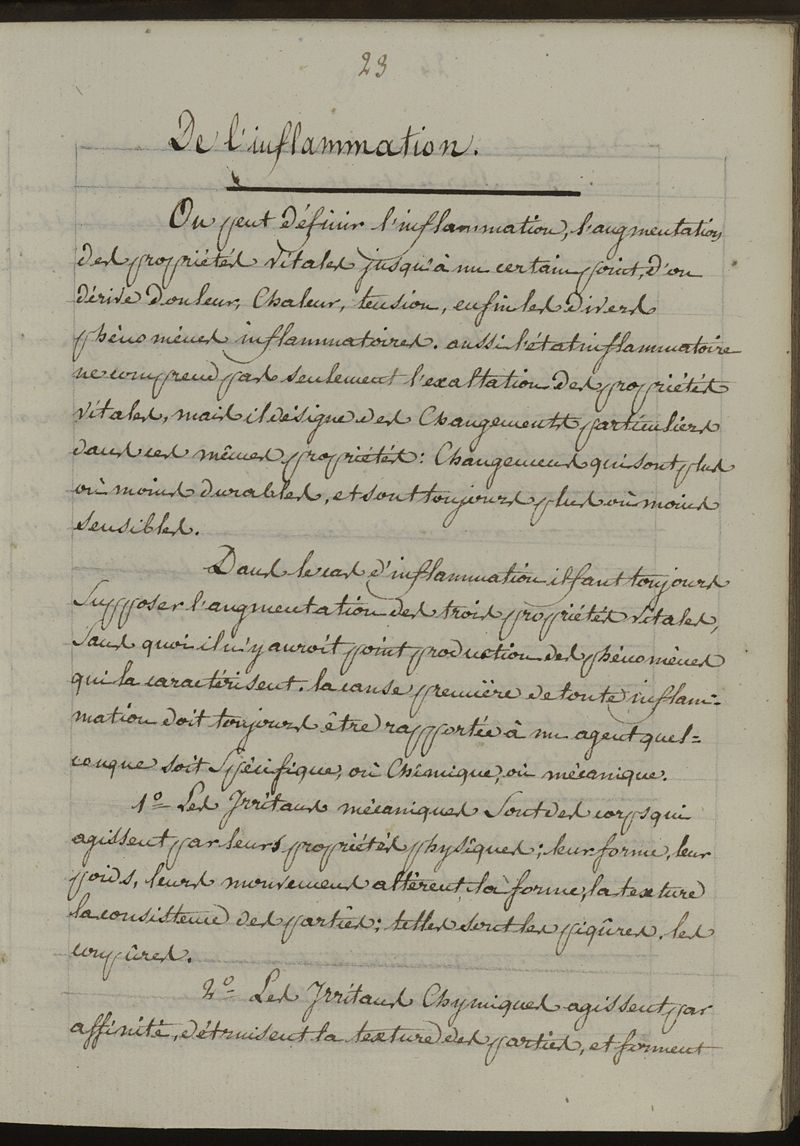 23
De l'inflammation.
On peut définir l'inflammation, l'augmentation
des propriétés vitales jusqu'à un certain point, d'ou
dérive Douleur, Chaleur, tension, enfin les divers
phénomènes inflammatoires. aussi l'état inflammatoire
ne comprend pas seulement l'exaltation des propriétés
vitales, mais il désigne des Changements particuliers
dans ces mêmes propriétés: Changemens qui sont plus
où moins durables, et sont toujours plus où moins
sensibles.
Dans le cas d'inflammation il faut toujours
Supposer l'augmentation des trois propriétés vitales,
Sans quoi il n'y auroit point production des phénomènes
qui la caractérisent. la cause première de toute inflam=
mation doit toujours être rapportée à un agent quel=
conque soit Spécifique, où Chémique, où mécanique.
1º Les Irritans mécaniques Sont des corps qui
agissent par leurs propriétés physiques; leur forme, leur
poids, leurs mouvemens altèrent la forme, la texture
la consistence des parties; telles sont les piqûres, les
coupûres.
2º Les Irritans Chymiques agissent par
affinité, détruisent la texture des parties, et forment